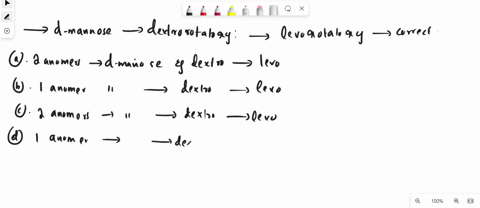 → d-mannose → dextrorotatory: → levorotatory → correct
(a). 2 anomers → d-mannose of dextro → levo
(b). 1 anomer " → dextro → levo
(c). 2 anomers → " → dextro → levo
(d) 1 anomer → → de
100%